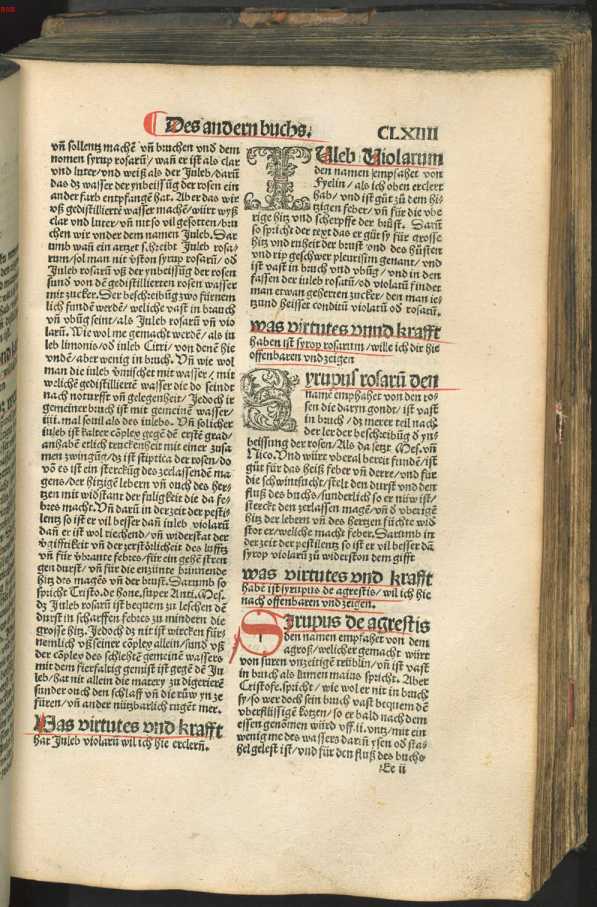 Des andern buchs.
CLXIIII
vñ sollentz machẽ vñ bruchen vnd dem
nomen syrup rosarũ/ wañ er ist als clar
vnd luter/ vnd weiß als der Juleb/ darũ
das dz wasser der ynbeissũg der rosen ein
ander farb entpfangẽ hat. Aber das wir
vß gedistillierte wasser machẽ/ würt wyß
clar vnd luter/ vñ nit so vil gesotten/ bru
chen wir vnder dem namen Juleb. Dar
umb wañ ein artzet schribt Juleb rosa/
rum/ sol man nit vston syrup rosarũ/ oď
Juleb rosarũ vß der ynbeissũg der rosen
sund von dẽ gedistillierten rosen wasser
mit zucker. Der beschribũg zwo fürnem
lich fundẽ werdẽ/ weliche vast in brauch
vñ vbũg seint/ als Juleb rosarũ vñ vio
larũ. Wie wol me gemacht werdẽ/ als iu
leb limonis/ od iuleb Citri/ von denẽ hie
vndẽ/ aber wenig in buch. Vñ wie wol
man die iuleb vnischet mit wasser/ mit
welichẽ gedistilliertẽ wasser die do seindt
nach noturfft vñ gelegenheit/ Jedoch ir
gemeiner bruch ist mit gemeinẽ wasser/
iiii. mal souil als des iulebs. Vñ solicher
iuleb ist kalter cõplex gegẽ dẽ erstẽ grad/
anhabẽ etlich truckenheit mit einer zusa
men zwingũg/ dz ist stiptica der rosen/ do
võ es ist ein sterckũg des zerlassendẽ ma
gens/ der hitzigẽ lebern vñ ouch des her/
tzen mit widstant der fuligkeit die da fe/
bres macht. Vñ darũ in der zeit der pesti/
lentz so ist er vil besser dañ iuleb violarũ
dañ er ist wol riechend/ vñ widerstat der
vgifftikeit vñ der zerstörlicheit des luffts
vñ für vbrante febres/ für ein gehẽ stren
gen durst/ vñ für die enzünte brinnende
hitz des magẽs vñ der brust. Darumb so
spricht Cristo. de hone. super Anti. Mes.
dz Juleb rosarũ ist bequem zu leschen dẽ
durst in scharffen febres zu mindern die
grosse hitz. Jedoch dz nit ist wircken für/
nemlich vß seiner cõplex allein/ sund vß
der cõplex des schlechtẽ gemeinẽ wassers
mit dem fierfaltig gemist ist gegẽ dẽ Ju
leb/ hat nit allein die matery zu digeriere
sunder ouch den schlaff vñ die rüw yn ze
füren/ vñ ander nützbarlich rüget mer.
Was virtutes vnd krafft
hat Juleb violarũ wil ich hie erclerñ.
IUleb Violarum
den namen empfahet von
Fyelin/ als ich oben erclert
hab/ vnd ist güt zü dem hi/
tzigen feber/ vñ für die vbe
rige hitz vnd scherpffe der brust. Darũ
so spricht der text das er güt sy für grosse
hitz vnd ruheit der brust vnd des hüsten
vnd rip geschwer pleurisim genant/ vnd
ist vast in bruch vnd vbũg/ vnd in den
fassen der iuleb rosarũ/ od violarũ findet
man etwan gehertten zucker/ den man ie/
tzund heisset conditũ violarũ od rosarũ.
was virtutes vnnd krafft
haben ist syrop rosarum/ wille ich dir hie
offenbaren vnd zeigen
SYrupus rosarũ den
namẽ emphahet von den ro/
sen die daryn gondt/ ist vast
in bruch/ dz merer teil nach
der ler der beschribũg ď yn/
beissung der rosen/ Als da setzt Mes. vñ
Nico. Vnd würt vberal bereit fundẽ/ ist
güt für das heiß feber vñ derre/ vnd für
die schwinsucht/ stelt den durst vnd den
fluß des buchs/ sunderlich so er nüw ist/
sterckt den zerlassen magẽ/ vñ ď vberigẽ
hitz der lebern vñ des hertzen füchte wid
stot er/ weliche macht feber. Darumb in
der zeit der pestilentz so ist er vil besser dã
syrop violarũ zü widerston dem gifft
was virtutes vnd krafft
habẽ ist syrupus de agrestis/ wil ich hie
nach offenbaren vnd zeigen.
SIrupus de agrestis
den namen empfahet von dem
agrost/ welicher gemacht würt
von suren vnzeitigẽ trüblin/ vñ ist vast
in bruch als lumen maius spricht. Aber
Cristofe. spricht/ wie wol er nit in bruch
sy/ so wer doch sein bruch vast bequem dẽ
vberflüssigẽ kotzen/ so er bald nach dem
essen genomen würd vff. ii. vntz/ mit ein
wenig me des wassers darin ysen od sta/
hel gelest ist/ vnd für den fluß des buchs
Ee ii